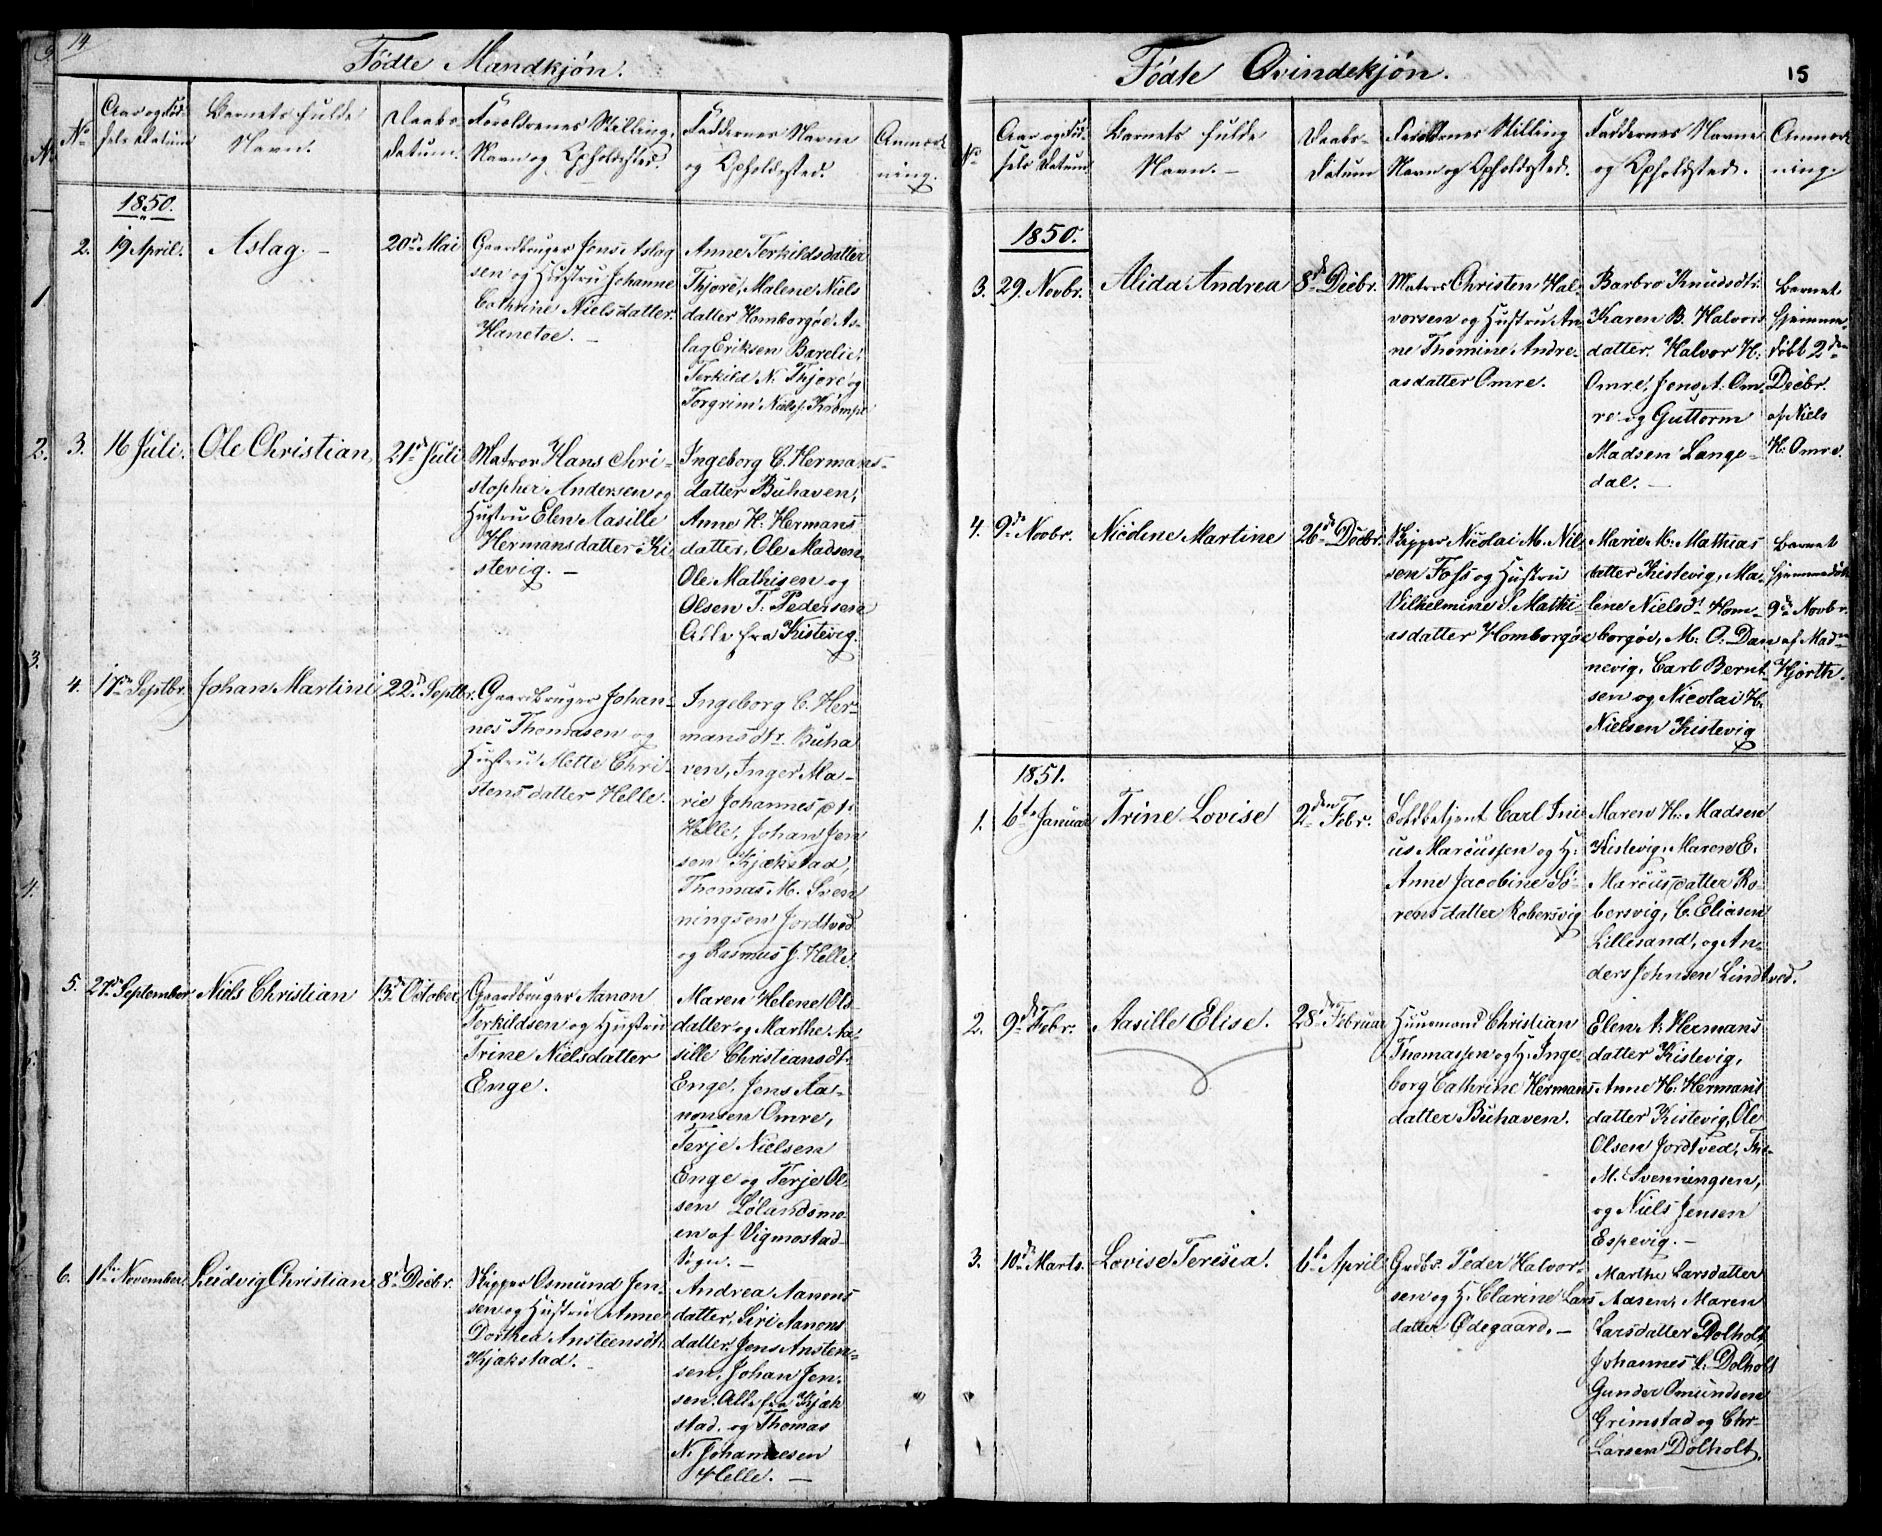 14
Fødte Mandkjøn.
No
Aar og Fød-
sels Datum
Barnets fulde
Navn.
Daabs-
datum.
Forældrenes Stilling,
Navn og Opholdsted.
Faddernes Navne
og Opholdssted.
Anmærk
ning.
1850.
2. 19 April.
Aslag. –
20d Mai
Gaardbruger Jens Aslag
sen og Hustru Johanne
Cathrine Nielsdatter
Hanetoe. –
Anne Terkildsdatter
Thjore, Malene Niels
datter Homborgøe As-
lag Eriksen Barelie,
Terkild N. Thjore og
Torgrim Nielss.
3. 16 Juli.
Ole Christian,
21d Juli
Matros Hans Chri-
stopher Andersen og
Hustru Elen Aasille
Hermansdatter Ki
stevig. –
Ingeborg C. Hermans-
datter Buhaven,
Anne H. Hermans
datter, Ole Madsen
Ole Mathisen og
Olsen T. Pedersen
Alle fra Kistevig.
4. 17de Septbr.
Johan Martin
22d Septbr.
Gaardbruger Johan-
nes Thomasen og
Hustru Mette Chri-
stensdatter Helle.
Ingeborg C. Her-
mansdtr. Buha
ven, Inger Ma-
rie Johannesdt.
Helle, Johan Jen
sen Kjækstad,
Thomas M. Sven
ningsen Jordtved
og Rasmus J. Helle.
5. 27de September
Niels Christian
13d October
Gaardbruger Aanon
Terkildsen og Hustru
Trine Nielsdatter
Enge.
Maren Helene Ols-
datter og Marthe Aa-
sille Christiansdt.
Enge, Jens Aa-
nonsen Omre,
Terje Nielsen
Enge og Terje Ol-
sen Lølandsmo-
en af Vigmostad
Sogn. –
6. 11te November
Ludvig Christian
8d Decbr.
Skipper Osmund Jen-
sen og Hustru Anne
Dorthea Ansteensdt.
Kjækstad. –
Andrea Aanons
datter, Siri Aanons
datter Jens Ansten-
sen, Johan Jen-
sen. Alle fra Kjæk
stad. og Thomas
N. Johannesen
Helle. –
15
Fødte Qvindekjøn.
No
Aar og Fød-
sels Datum
Barnets fulde
Navn. –
Daabs-
Datum
Forældrenes Stilling
Navn og Opholdsted.
Faddernes Navne
og Opholdsted.
Anmærk
ning.
1850.
3. 29. Novbr.
Alida Andrea
8de Decbr.
Matros Christen Hal-
vorsen og Hustru An
ne Thomine Andre-
asdatter Omre.
Barbro Knudsdtr.
Karen B. Halvors
datter. Halvor H.
Omre, Jens A. Om-
re og Guttorm
Madsen Lange-
dal. –
Barnet
hjemme-
døbt 2den
Decbr.
af Niels
H. Omre.
4. 9de Novbr.
Nicoline Martine
26de Decbr.
Skipper Nicolai M. Niel
sen Foss og Hustru
Vilhelmine S. Mathi-
asdatter Homborgøe
Marie M. Mathias
datter Kistevig, Ma-
lene Nielsdt. Hom-
borgøe, M. O. Dan
nevig, Carl Bernt-
sen og Nicolai H.
Nielsen Kistevig
Barnet
hjemmedøbt
9de Novbr.
af Madme
Hjorth.
1851.
1. 6te Januar
Trine Lovise
2den Febr.
Toldbetjent Carl Ini
us Marcussen og H.
Anne Jacobine Sø-
rensdatter Robersvig
Maren H. Madsen
Kistevig, Maren E.
Marcusdatter Ro-
bersvig, C. Eliasen
Lillesand, og An-
ders Johnsen Lindtved.
2. 9de Febr.
Aasille Elise.
28de Februar
Huusmand Christian
Thomassen og H. Inge-
borg Cathrine Hermans
datter Buhaven.
Elen A. Hermans
datter Kistevig,
Anne H. Hermans
datter Kistevig, Ole
Olsen Jordtved, Th.
M. Svenningsen,
og Niels Jensen
Espevig. –
3. 10de Marts.
Lovise Teresia.
6te April
Grdbr. Peder Halvor-
sen og H. Clarine Lars
datter Ødegaard. –
Marthe Larsdatter
Aasen, Maren
Larsdatter Dolholt,
Johannes L. Dolholt
Gunder Omundsen
Grimstad og Chr.
Larsen Dolholt.